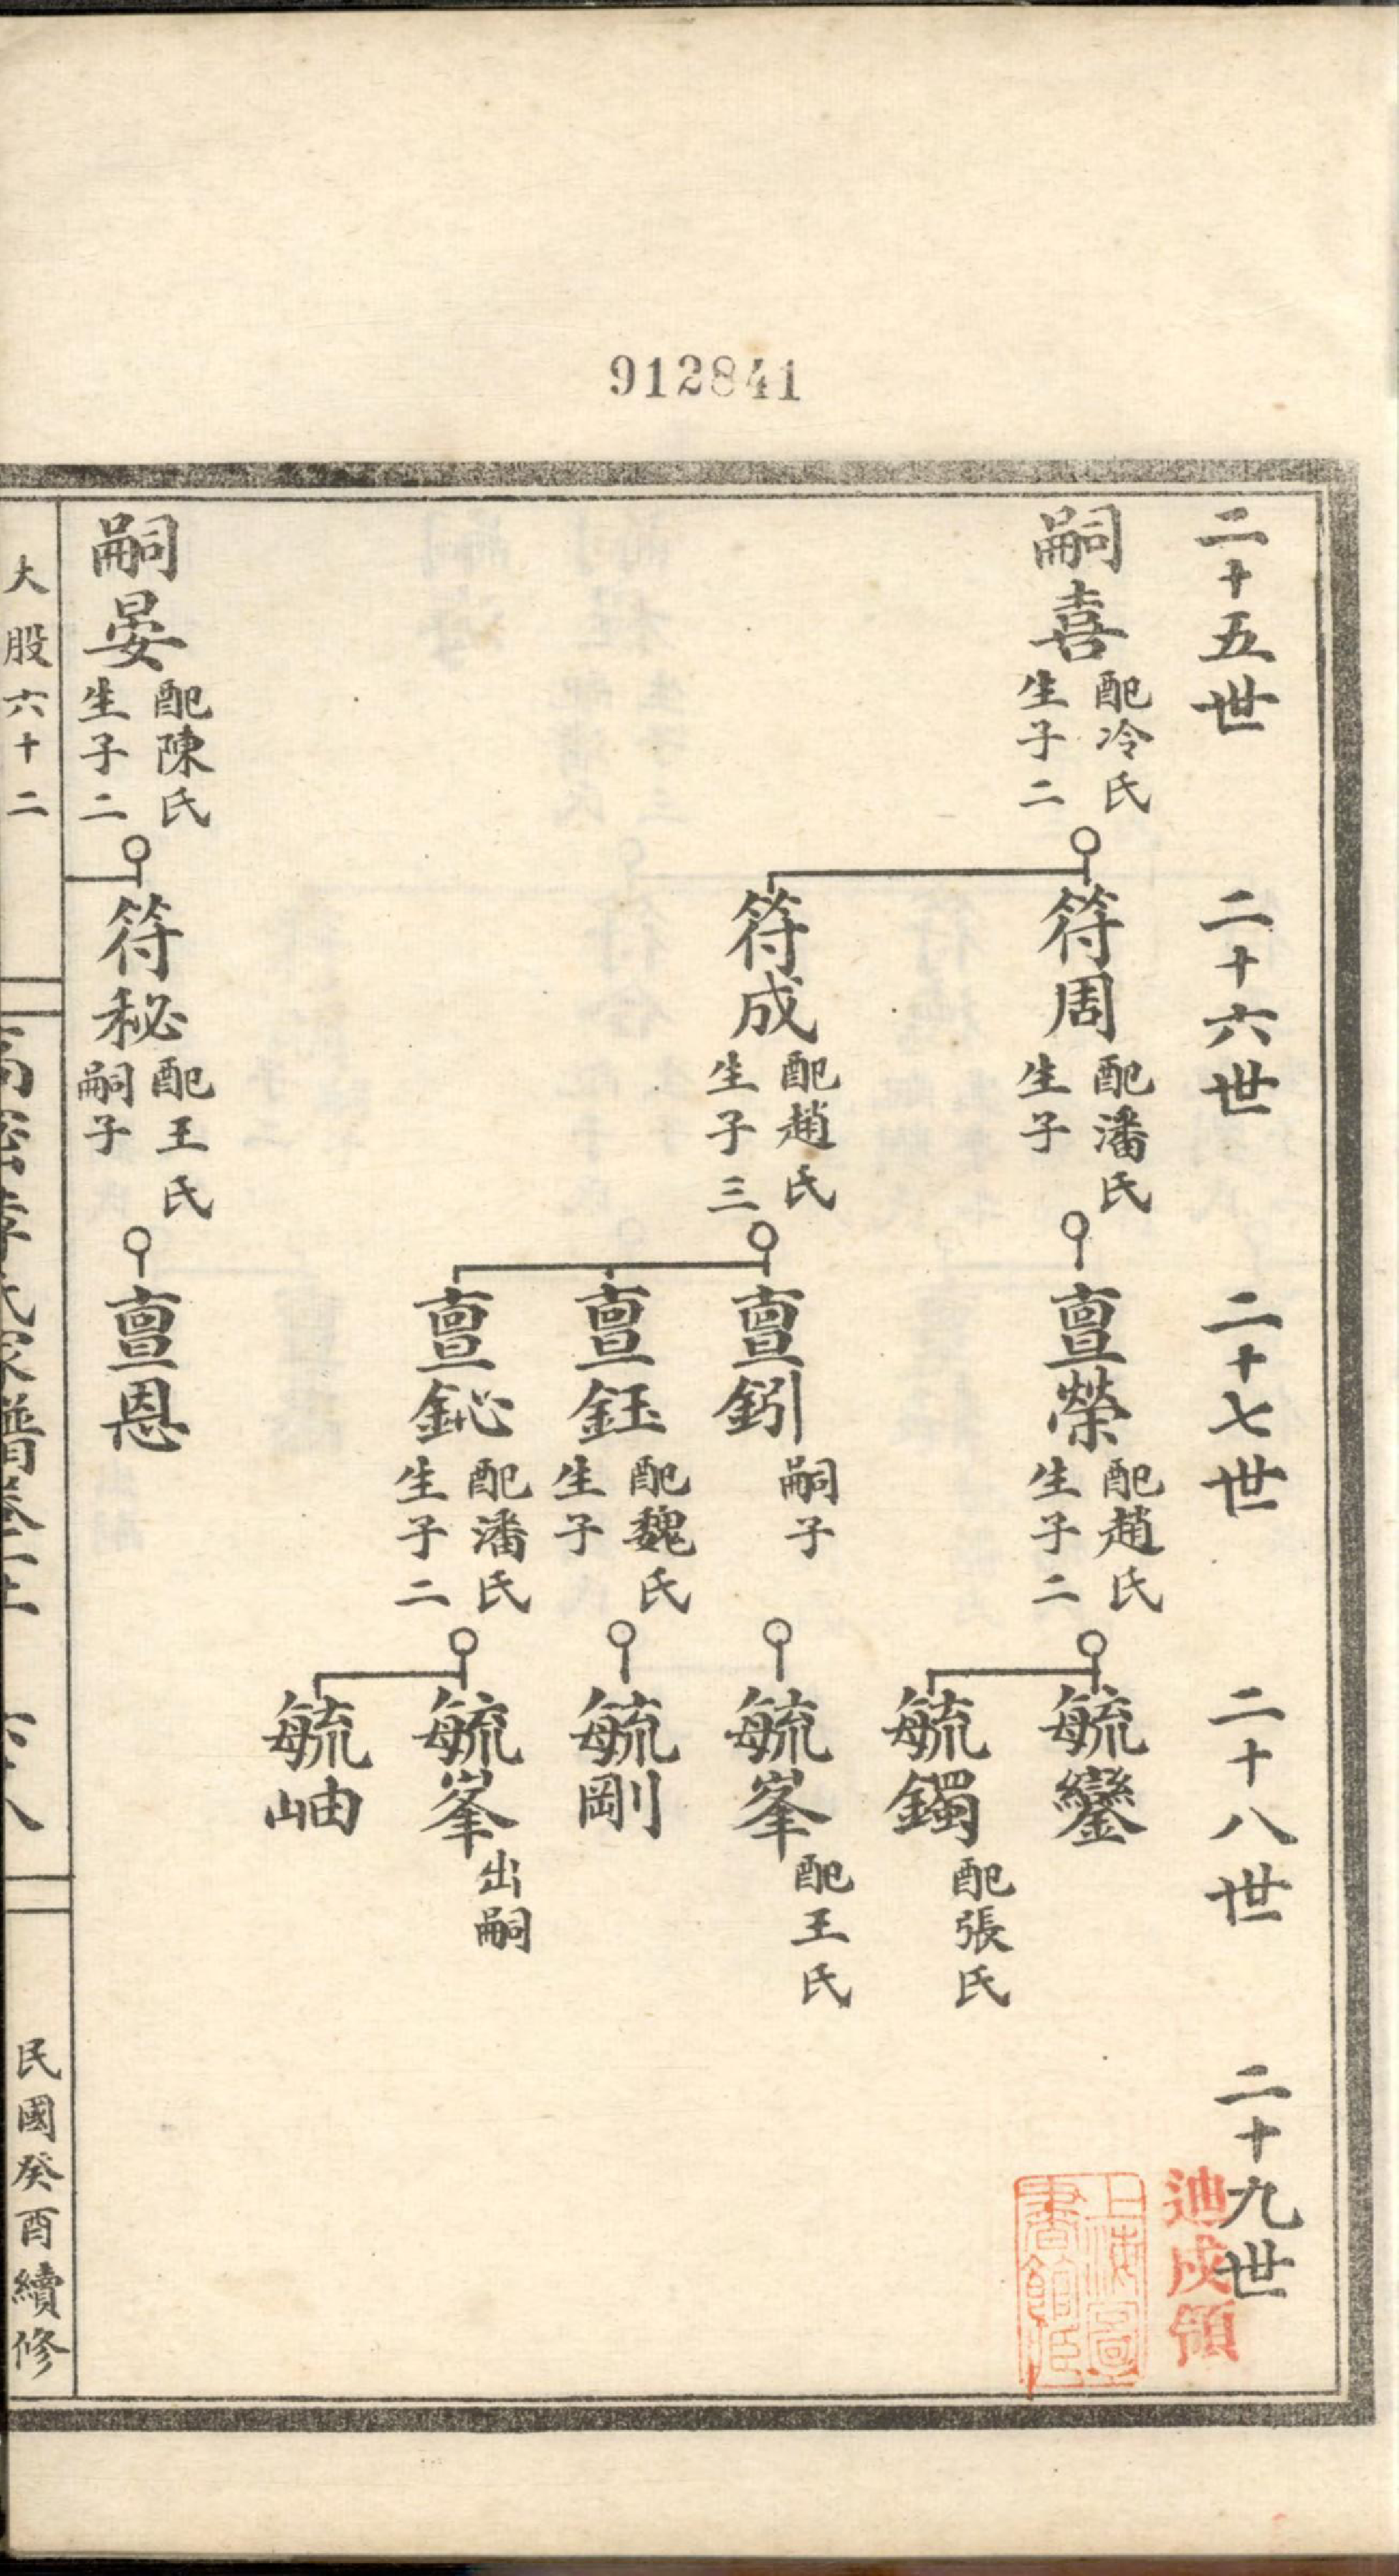 912841
二十五世
二十六世
二十七世
二十八世
二十九世
嗣喜
配冷氏
生子二
符周
配潘氏
生子
亶榮
配趙氏
生子二
毓鑾
毓鐲
配張氏
符成
配趙氏
生子三
亶鈏
嗣子
毓峯
配王氏
亶鈺
配魏氏
生子
毓剛
亶鉍
配潘氏
生子二
毓峯
出嗣
毓岫
嗣晏
配陳氏
生子二
符秘
配王氏
嗣子
亶恩
大股六十二
民國癸酉續修
上海圖書館藏
迪成領